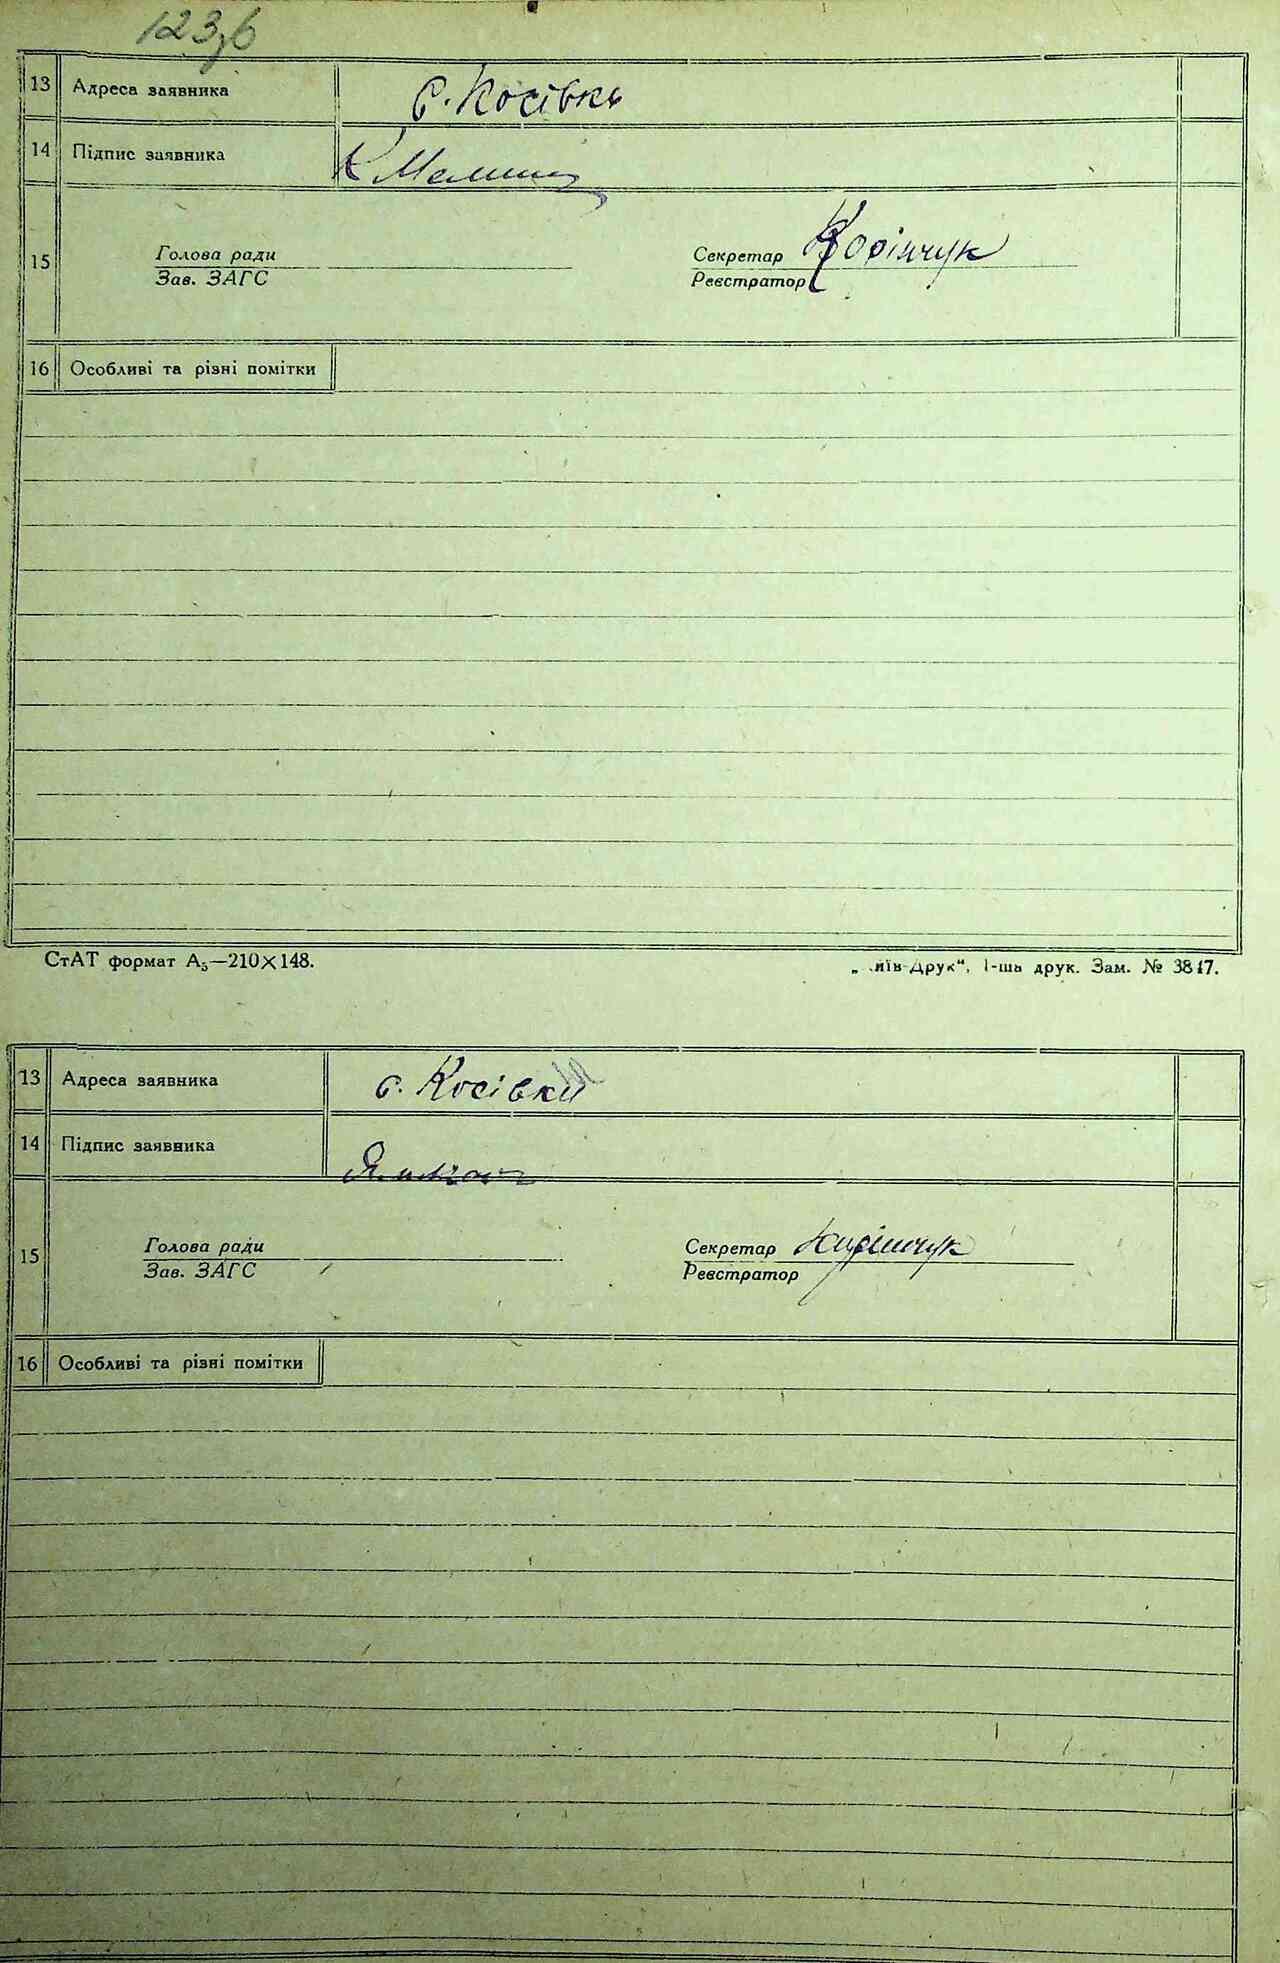 123зв
13 Адреса заявника с. Косівка
14 Підпис заявника
15 Голова ради Секретар
Зав. ЗАГС Реєстратор
16 Особливі та різні помітки
СтАТ формат А₅—210×148. Друк“, 1-ша друк. Зам. № 3847.
13 Адреса заявника с. Косівка
14 Підпис заявника
15 Голова ради Секретар
Зав. ЗАГС Реєстратор
16 Особливі та різні помітки